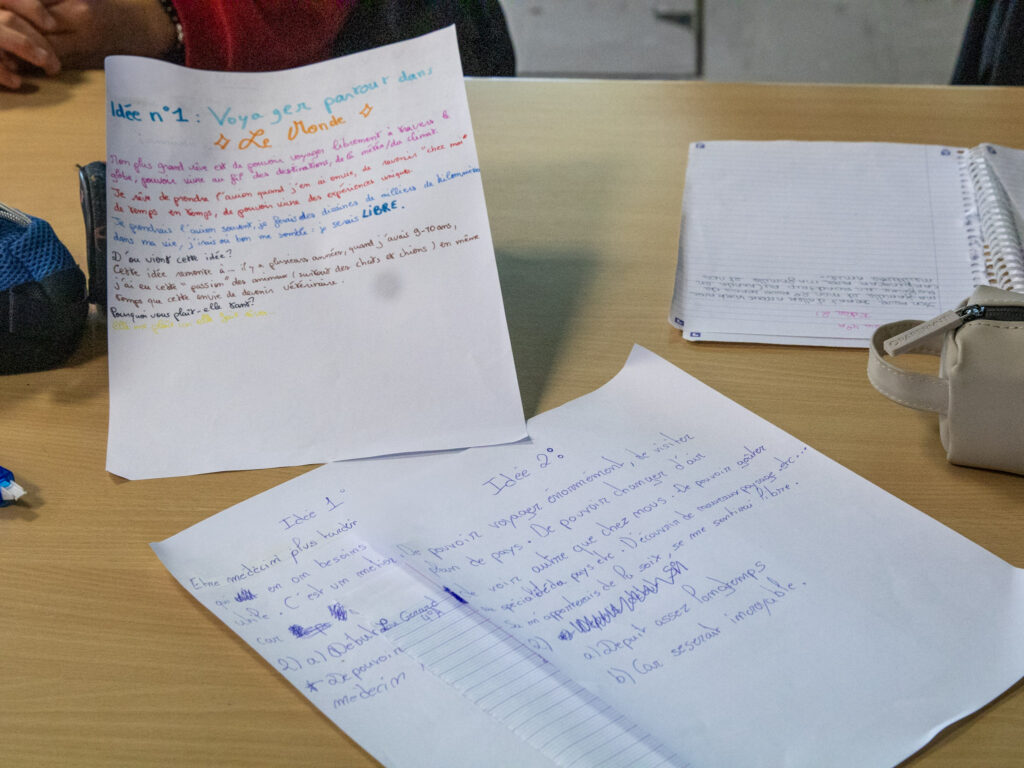 Idée n°1 : Voyager partout dans
Le Monde
Mon plus grand rêve est de pouvoir voyager librement à travers le
globe, pouvoir vivre au fil des destinations, de la météo/du climat.
Je rêve de prendre l'avion quand j'en ai envie, de revenir "chez moi"
de temps en temps, de pouvoir vivre des expériences uniques.
Je prendrais l'avion souvent, je ferais des dizaines de milliers de kilomètres
dans ma vie, j'irais où bon me semble : je serais LIBRE.
D'où vient cette idée?
Cette idée remonte à... il y a plusieurs années, quand j'avais 9-10 ans,
j'ai eu cette "passion" des animaux (surtout des chats et chiens) en même
temps que cette envie de devenir vétérinaire.
Pourquoi vous plaît-elle tant?
elle me plaît car elle
Idée 1°
Etre medecim plus tard
on om besoins
utile. C'est un metier
Car
2) a) Debut La Gérard
* De pouvoir
medecim
Idée 2°.
De pouvoir voyager énormément, de visiter
plein de pays. De pouvoir changer d'air
voir autre que chez nous. De pouvoir goûter
spécial des pays etc. Découvrir de nouveaux paysage etc...
Su m'apporterais de la soif, se me sentirai libre.
2)
a) Depuit assez longtemps
b) Car seserait incroyable.